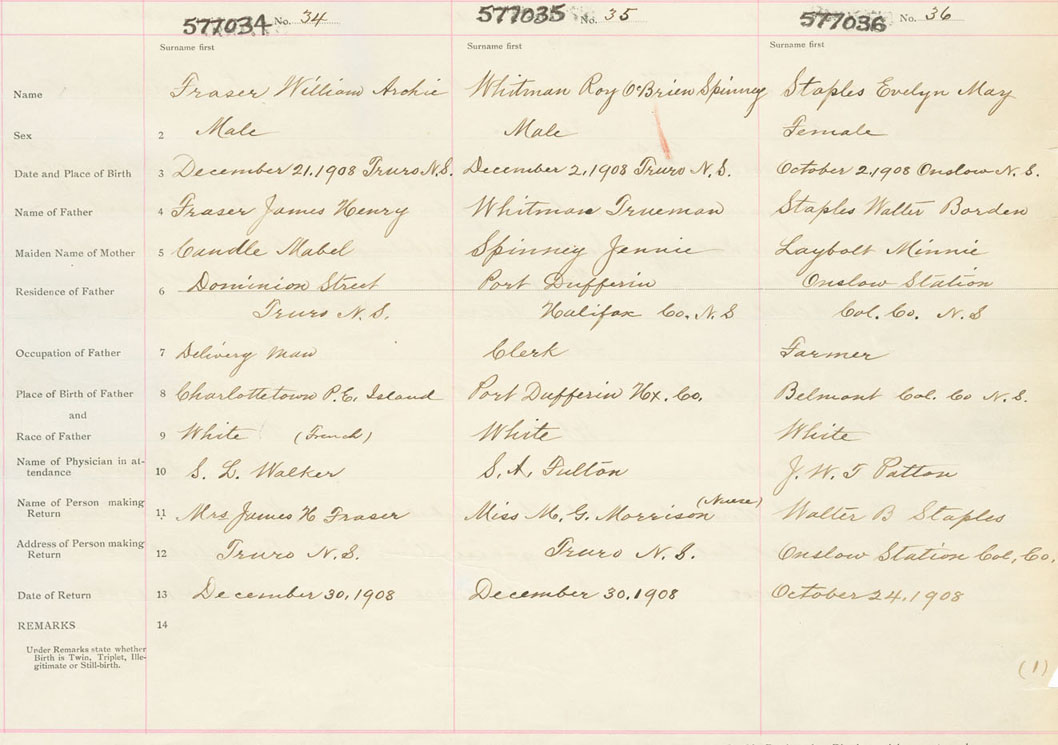 577034 No. 34 577035 No. 35 577036 No. 36
Surname first Surname first Surname first
Name Fraser William Archie Whitman Roy O'Brien Spinney Staples Evelyn May
Sex 2 Male Male Female
Date and Place of Birth 3 December 21, 1908 Truro N.S. December 2, 1908 Truro N.S. October 2, 1908 Onslow N.S.
Name of Father 4 Fraser James Henry Whitman Trueman Staples Walter Borden
Maiden Name of Mother 5 Caudle Mabel Spinney Jennie Laybolt Minnie
Residence of Father 6 Dominion Street Port Dufferin Onslow Station
Truro N.S. Halifax Co. N.S Col. Co. N.S
Occupation of Father 7 Delivery Man Clerk Farmer
Place of Birth of Father 8 Charlottetown P.E. Island Port Dufferin Hx. Co. Belmont Col. Co N.S.
and
Race of Father 9 White (French) White White
Name of Physician in at-
tendance 10 S. L. Walker S. A. Fulton J. W. T Patton
Name of Person making (Nurse)
Return 11 Mrs James H Fraser Miss M. G. Morrison Walter B Staples
Address of Person making
Return 12 Truro N.S. Truro N.S. Onslow Station Col, Co.
Date of Return 13 December 30, 1908 December 30, 1908 October 24, 1908
REMARKS 14
Under Remarks state whether
Birth is Twin, Triplet, Ille-
gitimate or Still-birth.
(1)